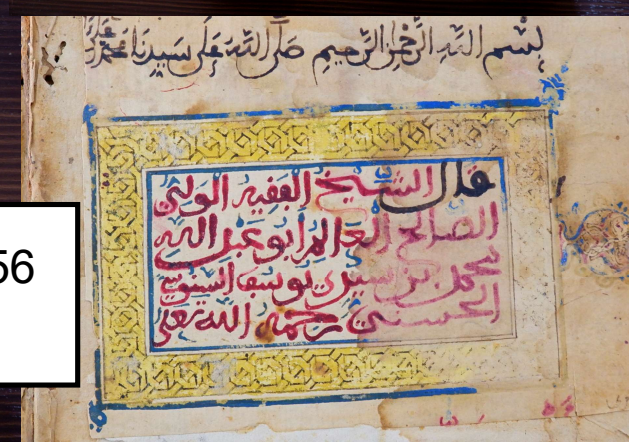 بسم الله الرحمن الرحيم صلى الله على سيدنا محمد
قال الشيخ الفقيه الولي
الصالح العالم أبو عبد الله
محمد بن سيدي يوسف السنوسي
الحسني رحمه الله تعلى
56